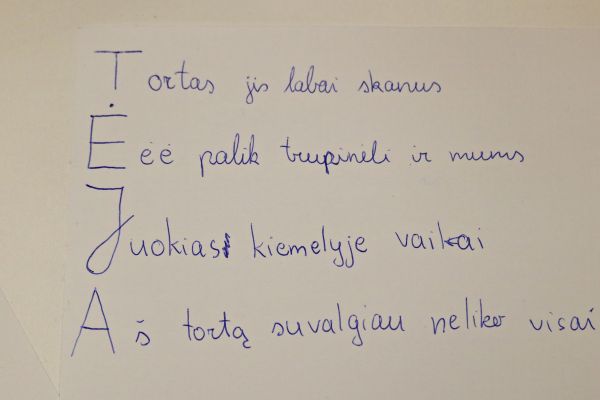 Tortas jis labai skanus
Ėėė palik trupinėlį ir mums
Juokiasi kiemelyje vaikai
Aš tortą suvalgiau neliko visai